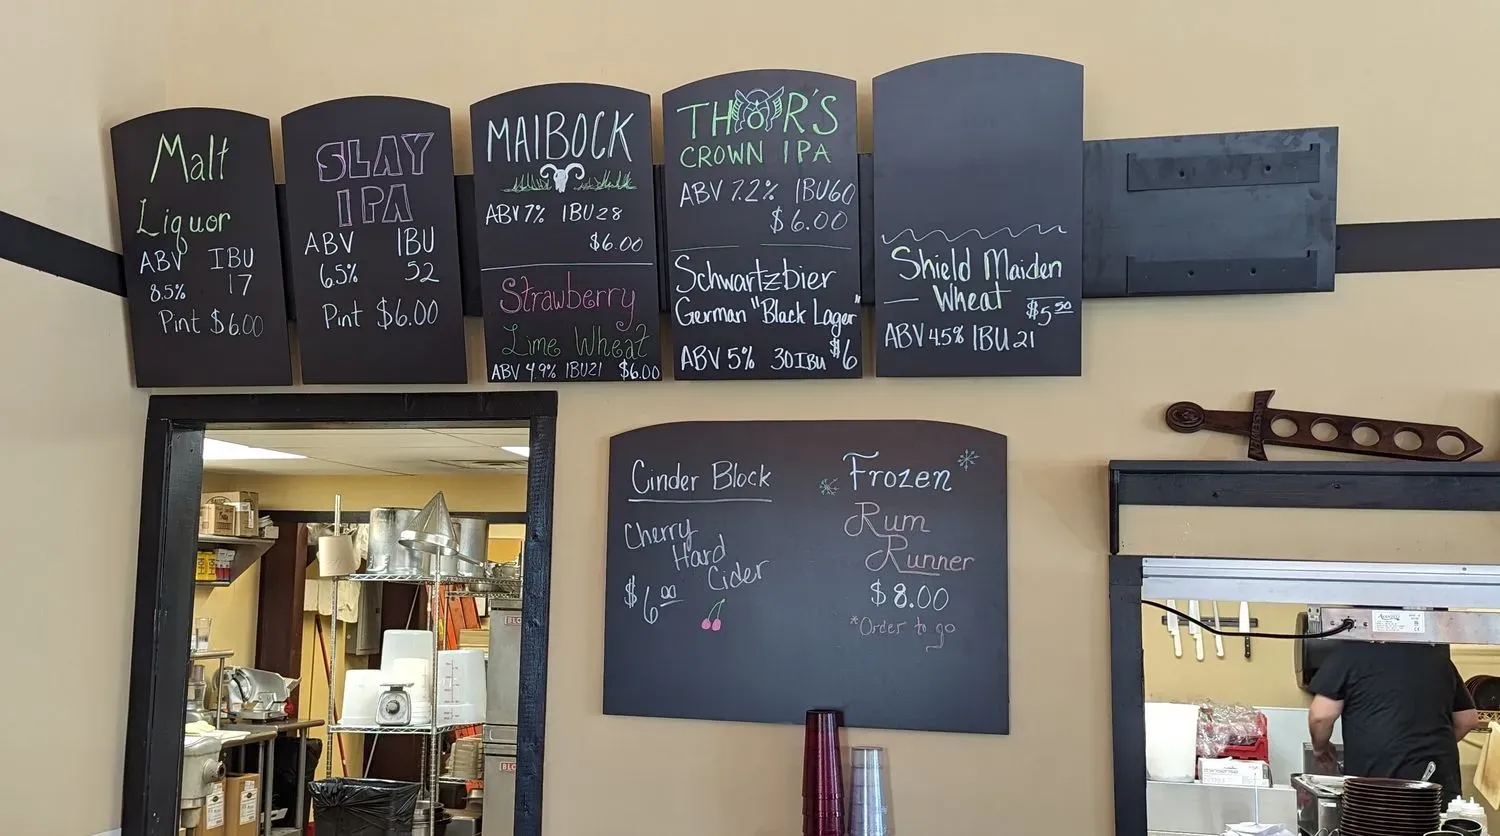 Malt
Liquor
ABV IBU
8.5% 17
Pint $6.00
SLAY
IPA
ABV IBU
6.5% 52
Pint $6.00
MAIBOCK
ABV 7% IBU 28
$6.00
Strawberry
Lime Wheat
ABV 4.9% IBU 21 $6.00
THOR'S
CROWN IPA
ABV 7.2% IBU 60
$6.00
Schwartzbier
German "Black Lager"
ABV 5% 30 IBU $6
Shield Maiden
Wheat $5.50
ABV 4.5% IBU 21
Cinder Block
Cherry
Hard
Cider
$6.00
Frozen
Rum
Runner
$8.00
*Order to go